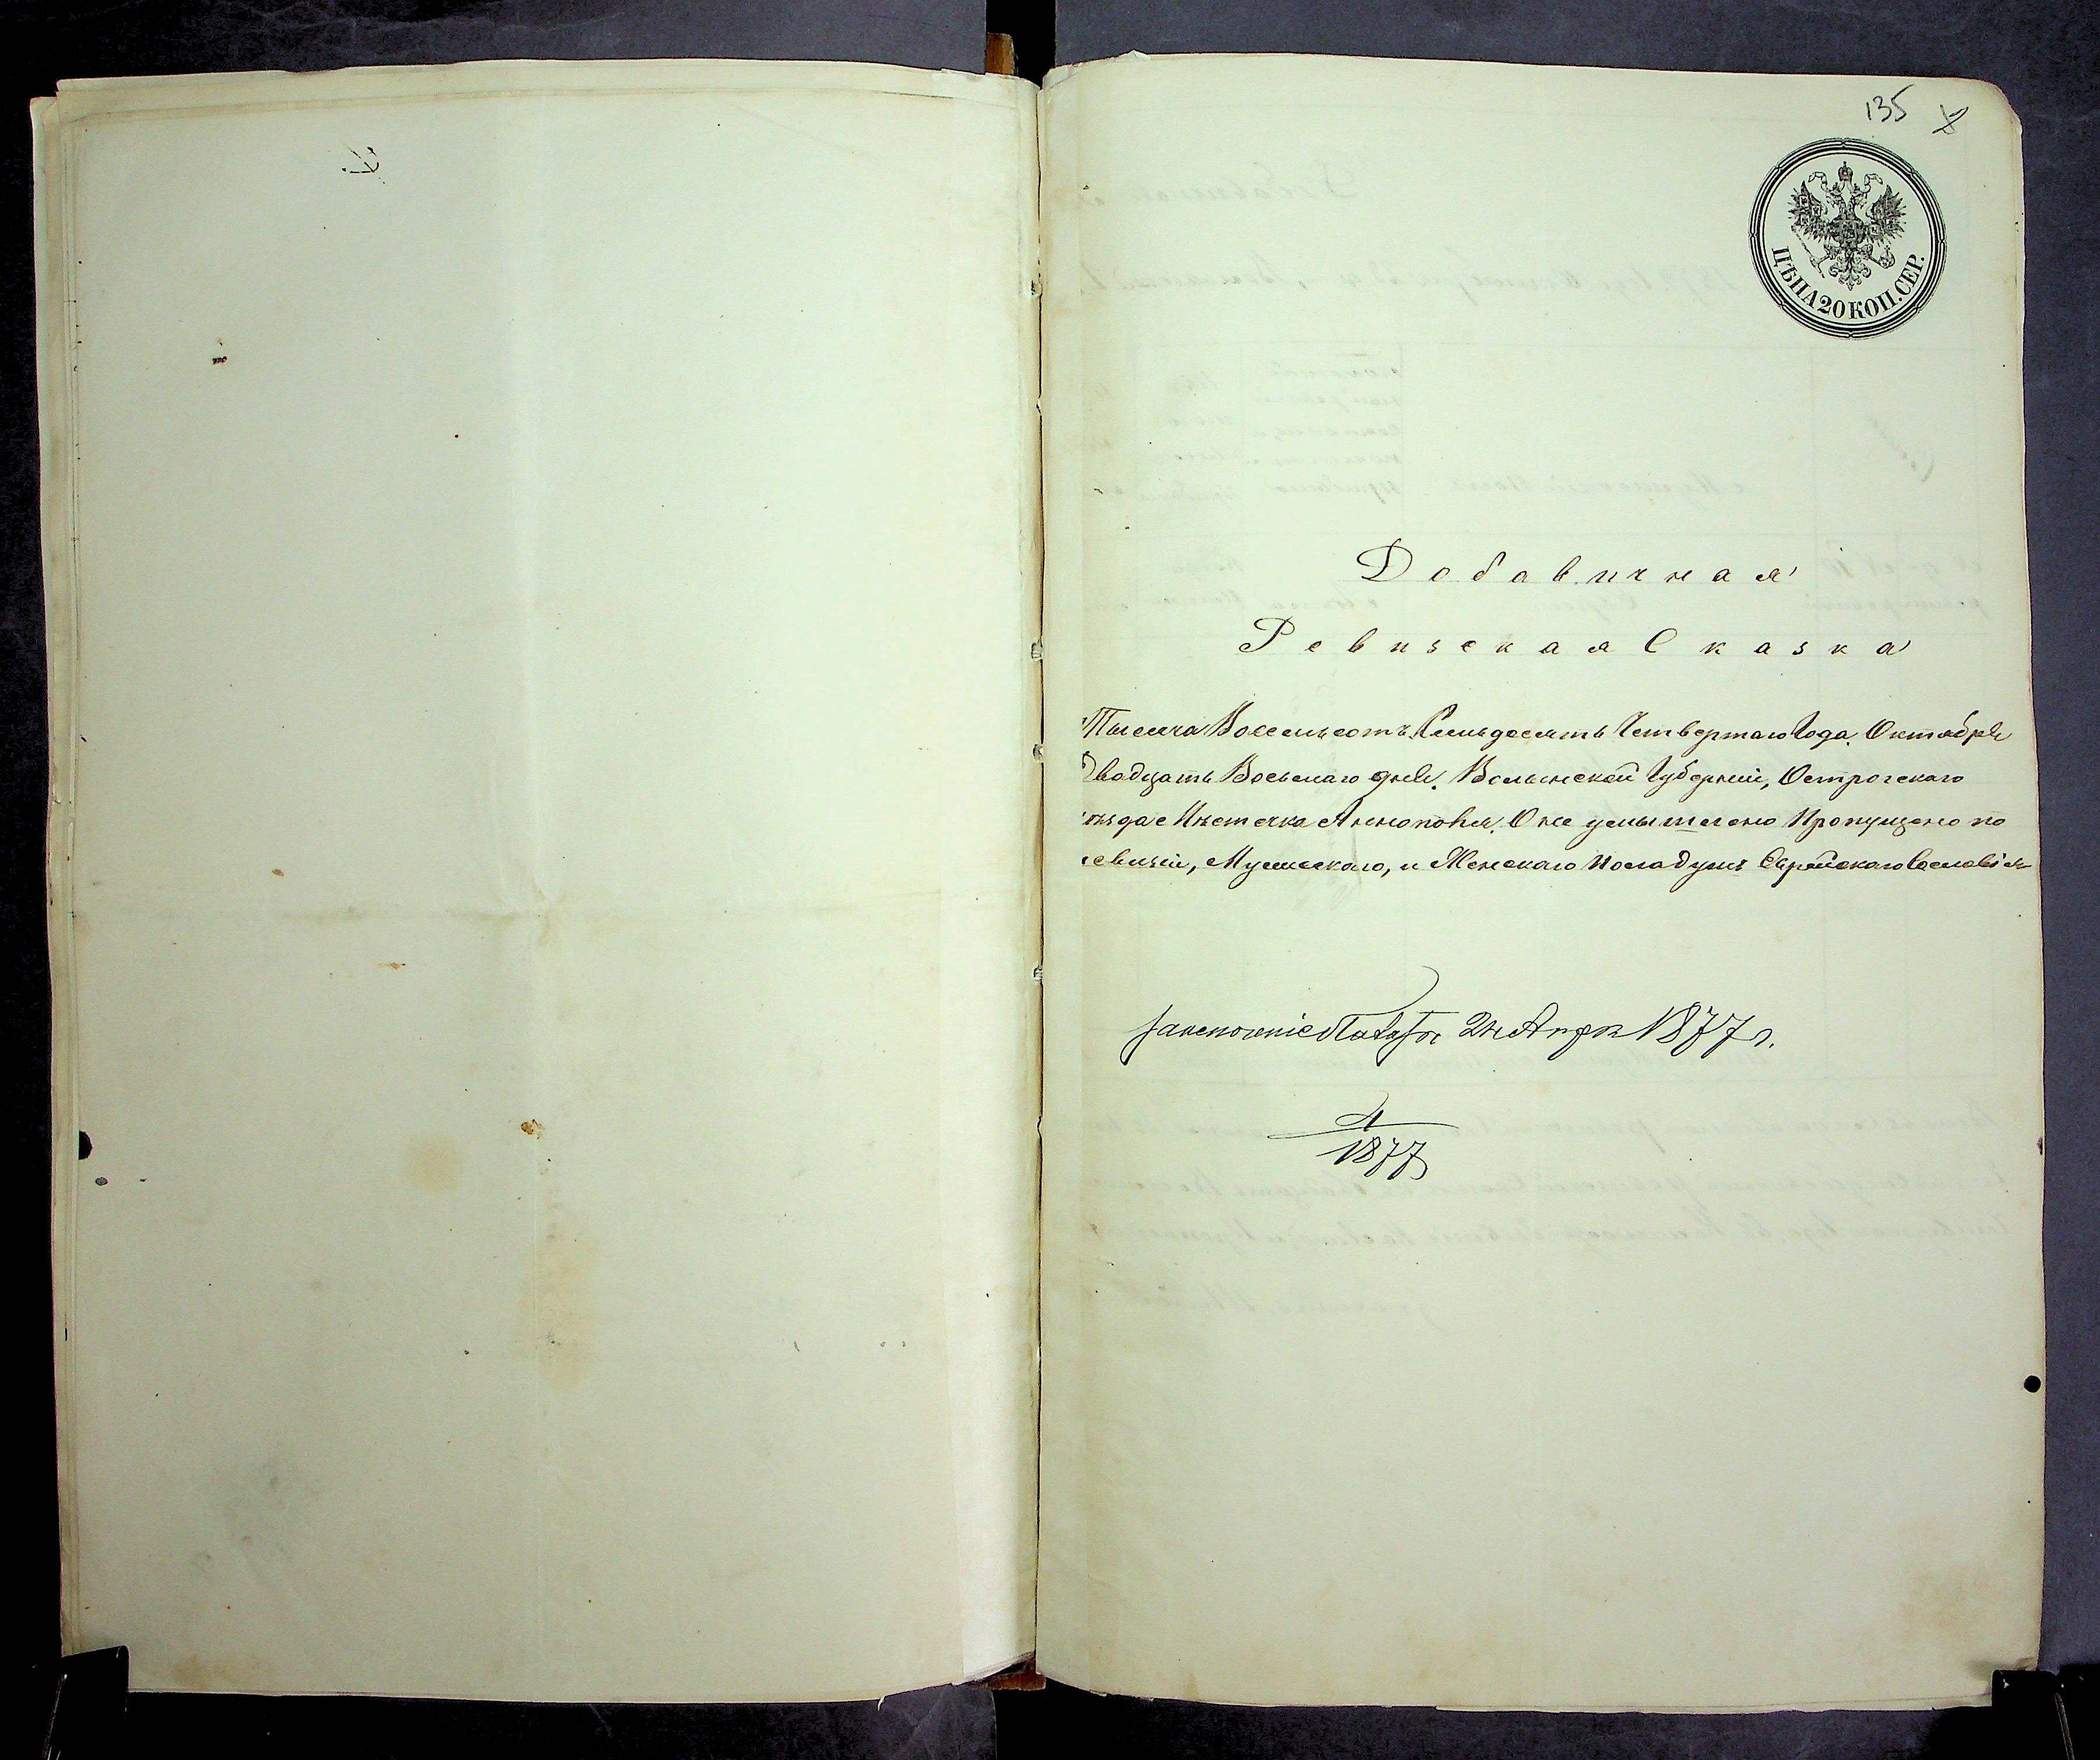 135
ЦѢНА 20 КОП. СЕР.
Добавичная
Ревизская Сказка
Тысяча Восемьсотъ Семьдесятъ Четвертаго Года. Октября
Двадцать Восьмаго дня. Волынской Губерніи, Острогскаго
уѣзда Мѣстечка Аннополя. О не умышлено Пропущено по
ревизіи, Мужескаго, и Женскаго пола душъ Еврейскаго Сословія
1877 г.
1877